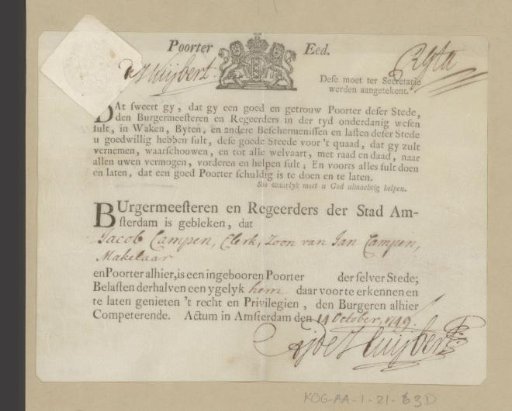 Poorter Eed.
Rgta
Dese moet ter Secretarie
werden aangetekent.
DAt sweert gy, dat gy een goed en getrouw Poorter deser Stede,
den Burgermeesteren en Regeerders in der tyd onderdanig wesen
sult, in Waken, Byten, en andere Beschermenissen en lasten deser Stede
u goedwillig hebben sult, dese goede Steede voor 't quaad, dat gy zult
vernemen, waarschouwen, en tot alle welvaart, met raad en daad, naar
allen uwen vermogen, vorderen en helpen sult; En voorts alles sult doen
en laten, dat een goed Poorter schuldig is te doen en te laten.
Soo waarlyk moet u God almachtig helpen.
BUrgermeesteren en Regeerders der Stad Am-
sterdam is gebleken, dat
Jacob Campen, Clerk, Zoon van Jan Campen,
Makelaar
en Poorter alhier, is een ingebooren Poorter der selver Stede;
Belasten derhalven een ygelyk hem daar voor te erkennen en
te laten genieten 't recht en Privilegien, den Burgeren alhier
Competerende. Actum in Amsterdam den 14 October, 1749.
KOG-AA-1-21-83D